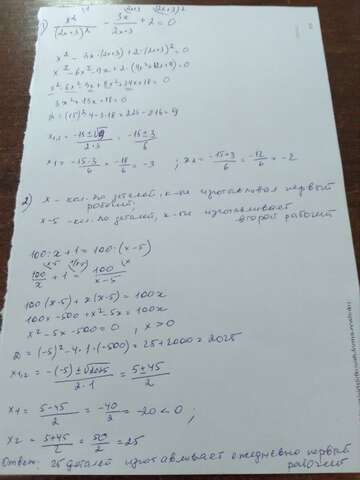 1) x²/(2x+3)² - 3x/(2x+3) + 2 = 0
x² - 3x·(2x+3) + 2·(2x+3)² = 0
x² - 6x² - 9x + 2·(4x²+12x+9) = 0
x² - 6x² - 9x + 8x² + 24x + 18 = 0
3x² + 15x + 18 = 0
D = (15)² - 4·3·18 = 225 - 216 = 9
x₁,₂ = (-15 ± √9)/(2·3) = (-15 ± 3)/6
x₁ = (-15-3)/6 = -18/6 = -3 ; x₂ = (-15+3)/6 = -12/6 = -2
2) x - кол. во деталей, к-ые изготавливал первый
рабочий;
x-5 - кол. во деталей, к-ые изготавливает
второй рабочий
100 : x + 1 = 100 : (x-5)
100/x + 1 = 100/(x-5)
100(x-5) + x(x-5) = 100x
100x - 500 + x² - 5x = 100x
x² - 5x - 500 = 0 , x > 0
D = (-5)² - 4·1·(-500) = 25 + 2000 = 2025
x₁,₂ = (-(-5) ± √2025)/(2·1) = (5 ± 45)/2
x₁ = (5-45)/2 = -40/2 = -20 < 0 ;
x₂ = (5+45)/2 = 50/2 = 25
Ответ: 25 деталей изготавливает ежедневно первый
рабочий